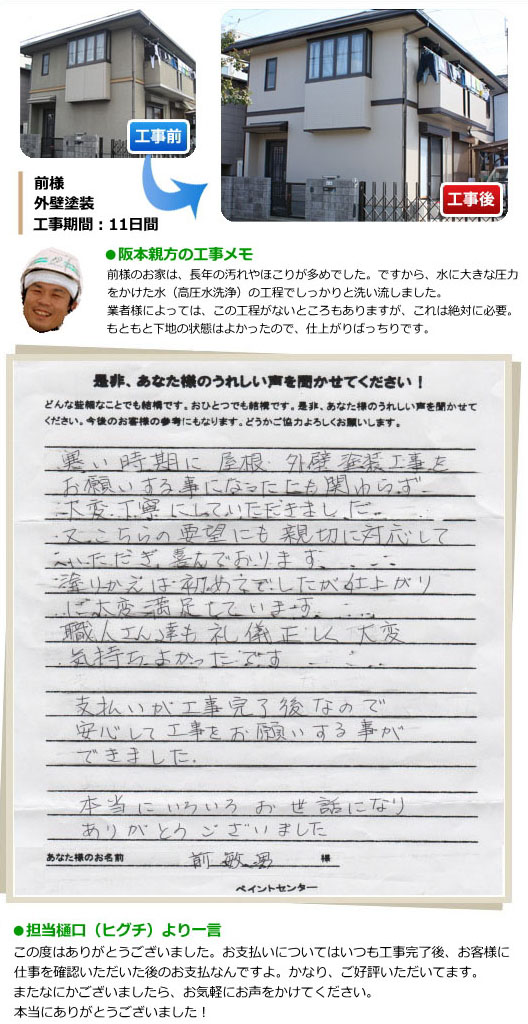 工事前
工事後
前様
外壁塗装
工事期間：11日間
●阪本親方の工事メモ
前様のお家は、長年の汚れやほこりが多めでした。ですから、水に大きな圧力
をかけた水（高圧水洗浄）の工程でしっかりと洗い流しました。
業者様によっては、この工程がないところもありますが、これは絶対に必要。
もともと下地の状態はよかったので、仕上がりばっちりです。
是非、あなた様のうれしい声を聞かせてください！
どんな些細なことでも結構です。おひとつでも結構です。是非、あなた様のうれしい声を聞かせて
ください。今後のお客様の参考にもなります。どうかご協力よろしくお願いします。
悪い時期に屋根・外壁塗装工事を
お願いする事になったにも関わらず
大変丁寧にしていただきました。
又、こちらの要望にも親切に対応して
いただき、喜んでおります。
塗りかえは初めてでしたが仕上がり
に大変満足しています。
職人さん達も礼儀正しく大変
気持ちよかったです
支払いが工事完了後なので
安心して工事をお願いする事が
できました。
本当にいろいろお世話になり
ありがとうございました
あなた様のお名前 前 敏男 様
ペイントセンター
●担当樋口（ヒグチ）より一言
この度はありがとうございました。お支払いについてはいつも工事完了後、お客様に
仕事を確認いただいた後のお支払なんですよ。かなり、ご好評いただいてます。
またなにかございましたら、お気軽にお声をかけてください。
本当にありがとうございました！